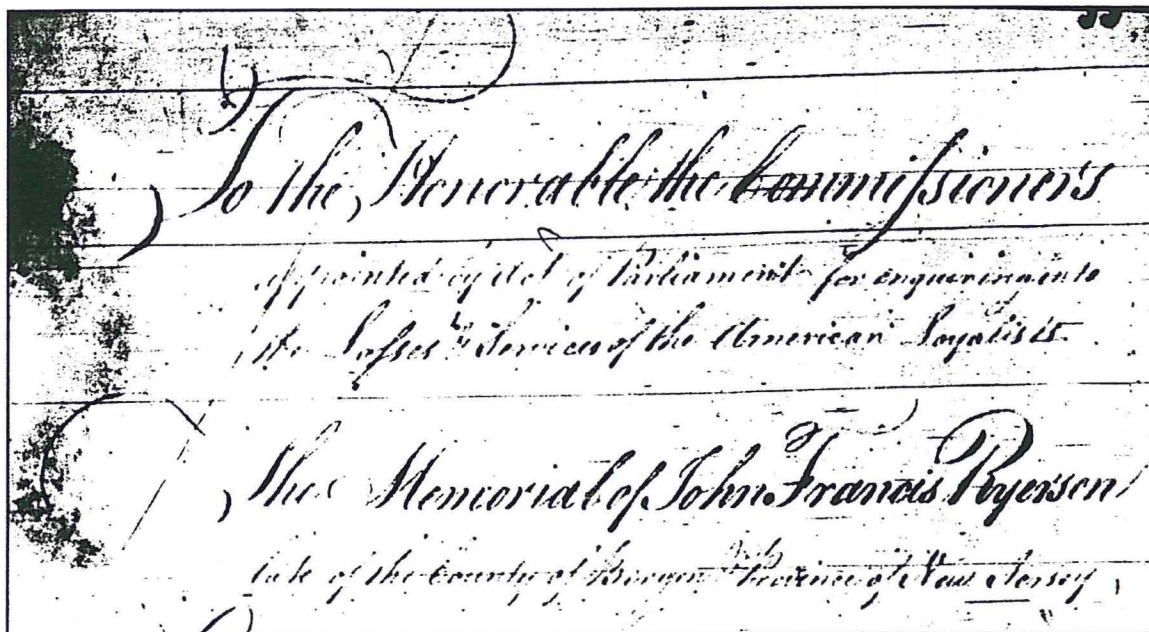 55.
To the Honorable the Commissioners
appointed by Act of Parliament for enquiring into
the Losses & Services of the American Loyalists.
The Memorial of John Francis Ryerson
late of the County of Bergen & Province of New Jersey,